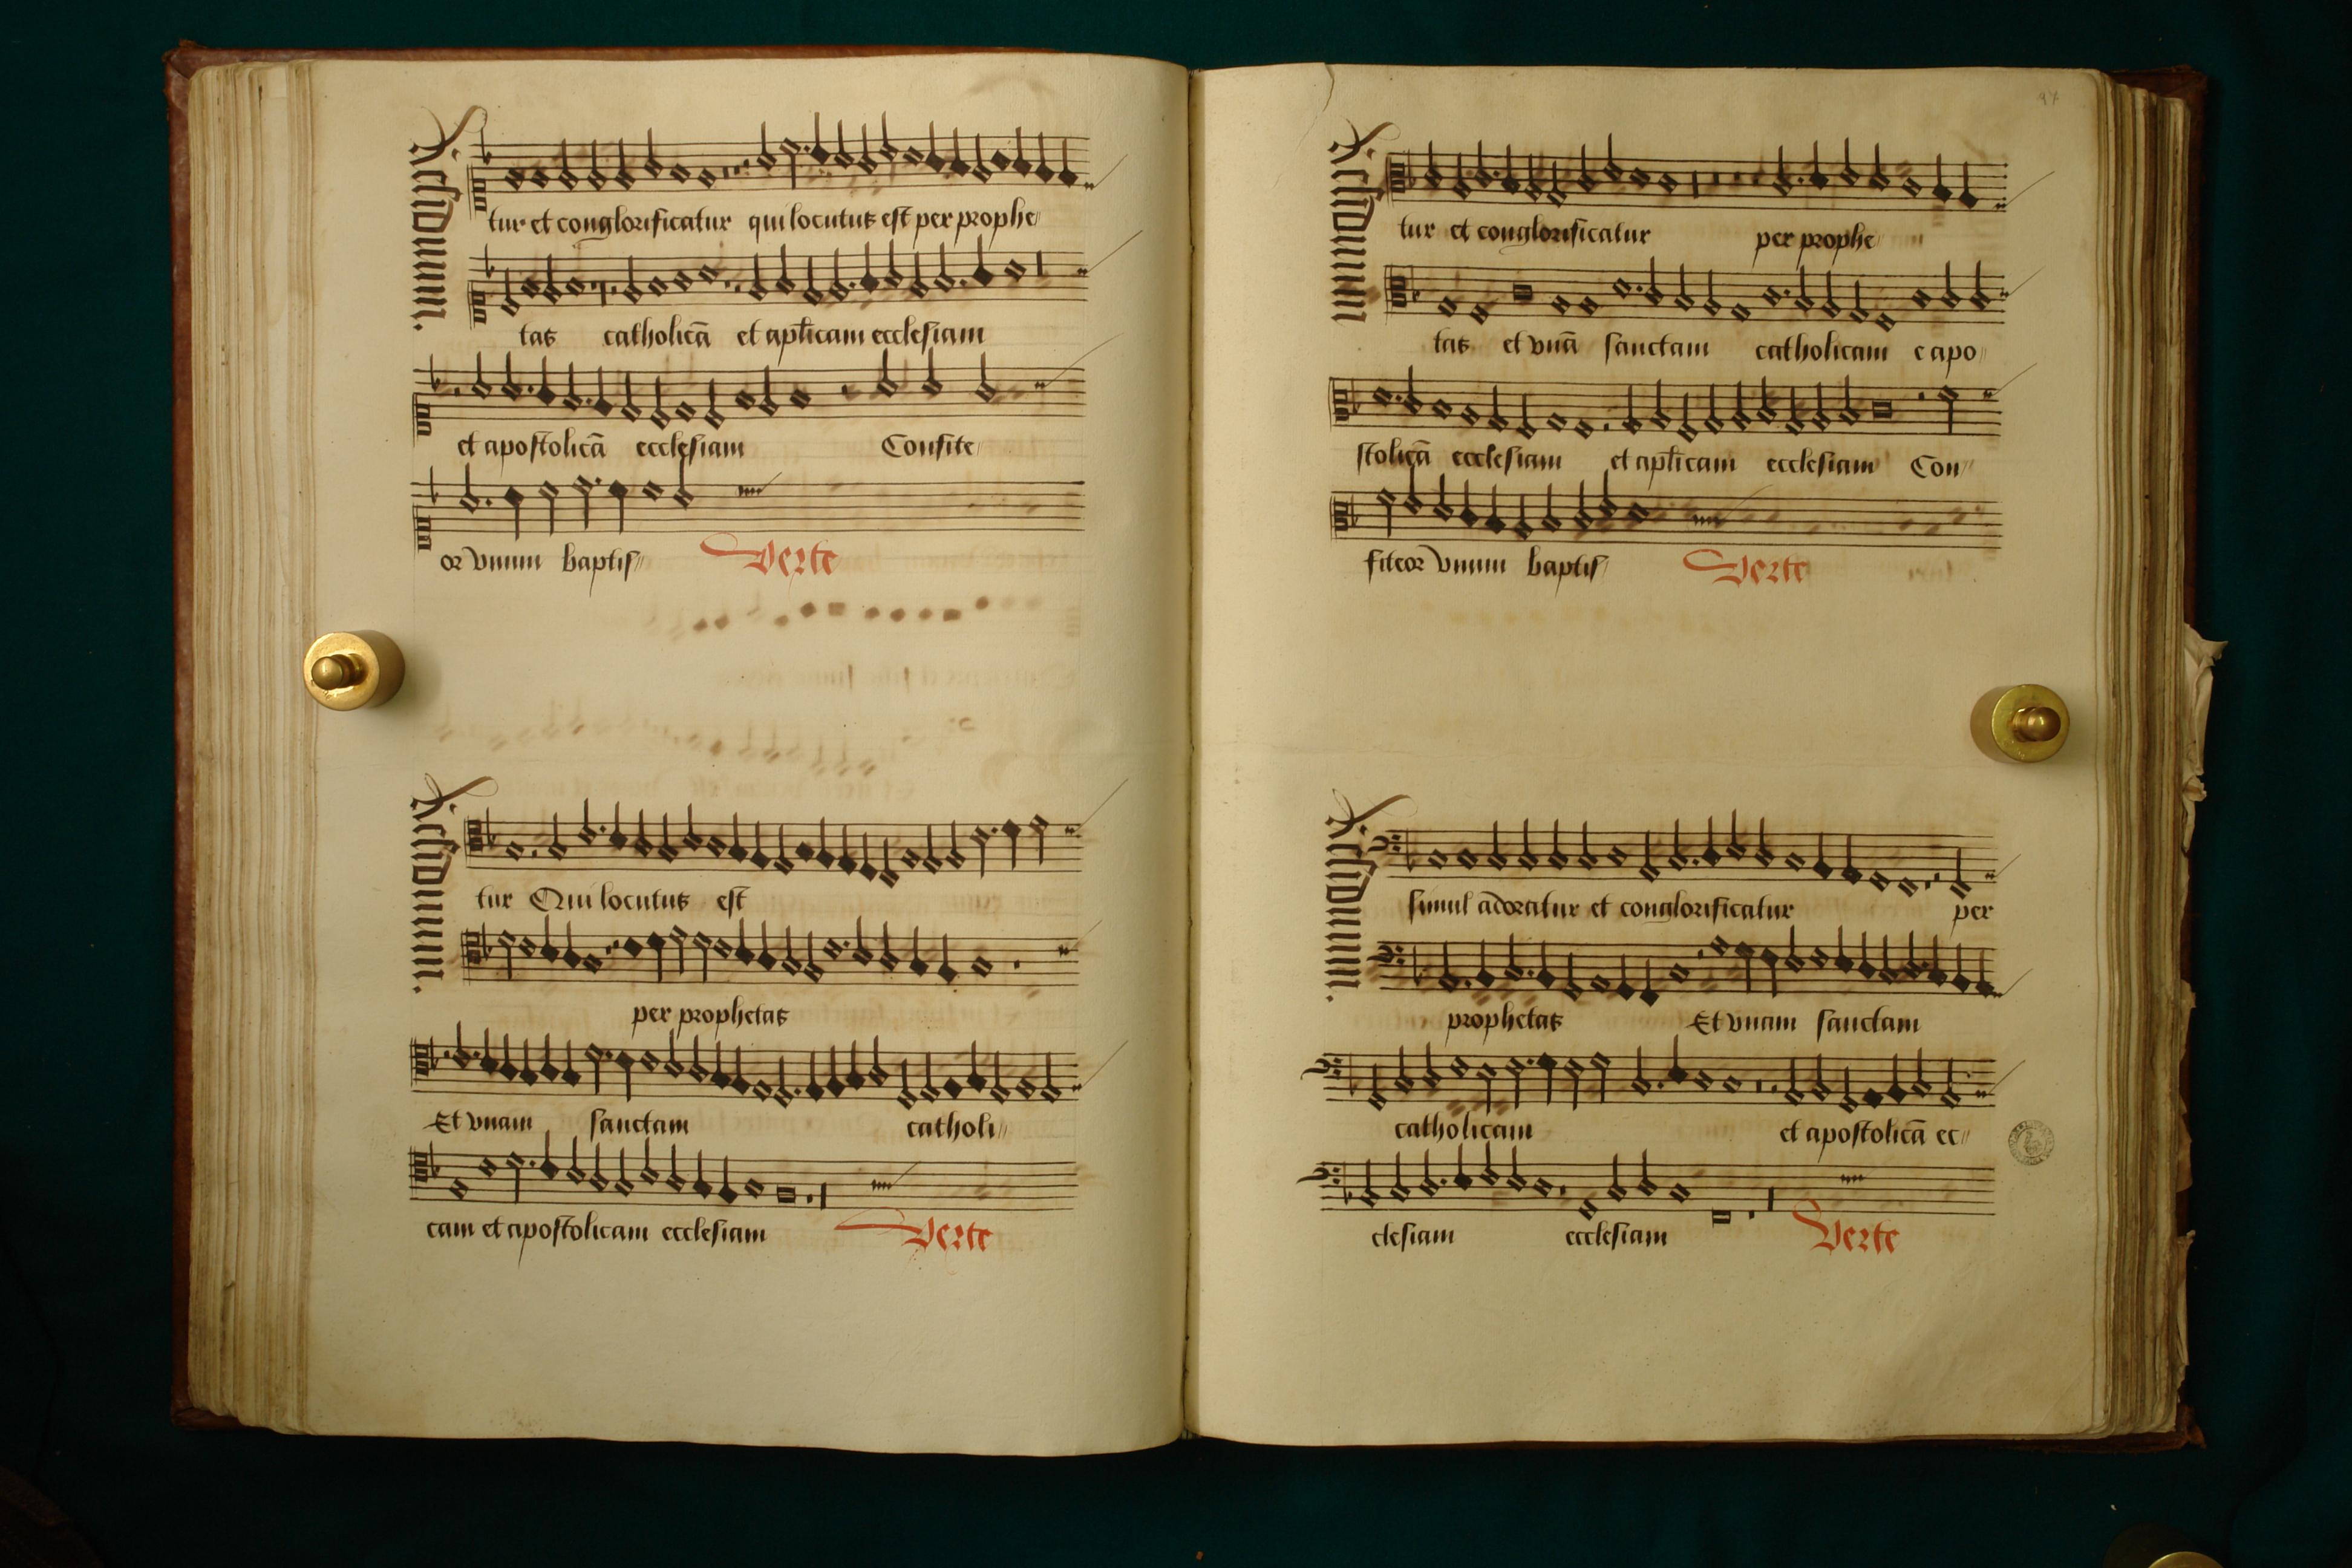 Residuum.
tur et conglorificatur qui locutus est per prophe
tas catholicā et aplicam ecclesiam
et apostolicā ecclesiam Confite
or vnum baptis Verte
Residuum.
tur Qui locutus est
per prophetas
Et vnam sanctam catholi
cam et apostolicam ecclesiam Verte
97
Residuum
tur et conglorificatur per prophe
tas et vnā sanctam catholicam e apo
stolicā ecclesiam et aplicam ecclesiam Con
fiteor vnum baptis Verte
Residuum.
simul adoratur et conglorificatur per
prophetas Et vnam sanctam
catholicam et apostolicā ec
clesiam ecclesiam Verte